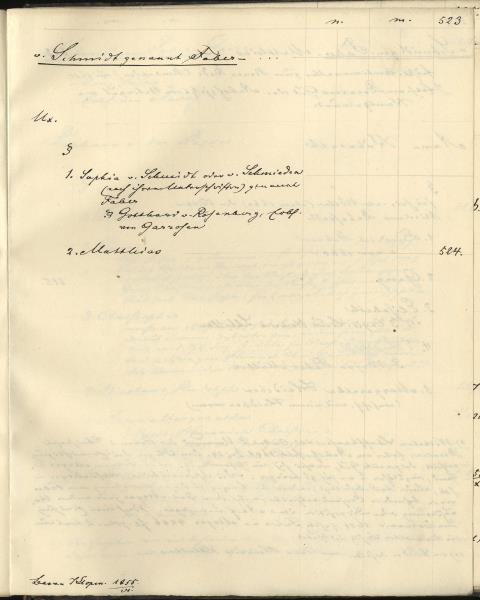 n. m. 523.
v. Schmidt genannt Faber
Ux.
§
1. Sophia v. Schmidt oder v. Schmieden
(nach ihren Unterschriften) genannt
Faber
Gotthard v. Rosenburg, Erbh.
von Garrosen
2. Matthias 524.
1855